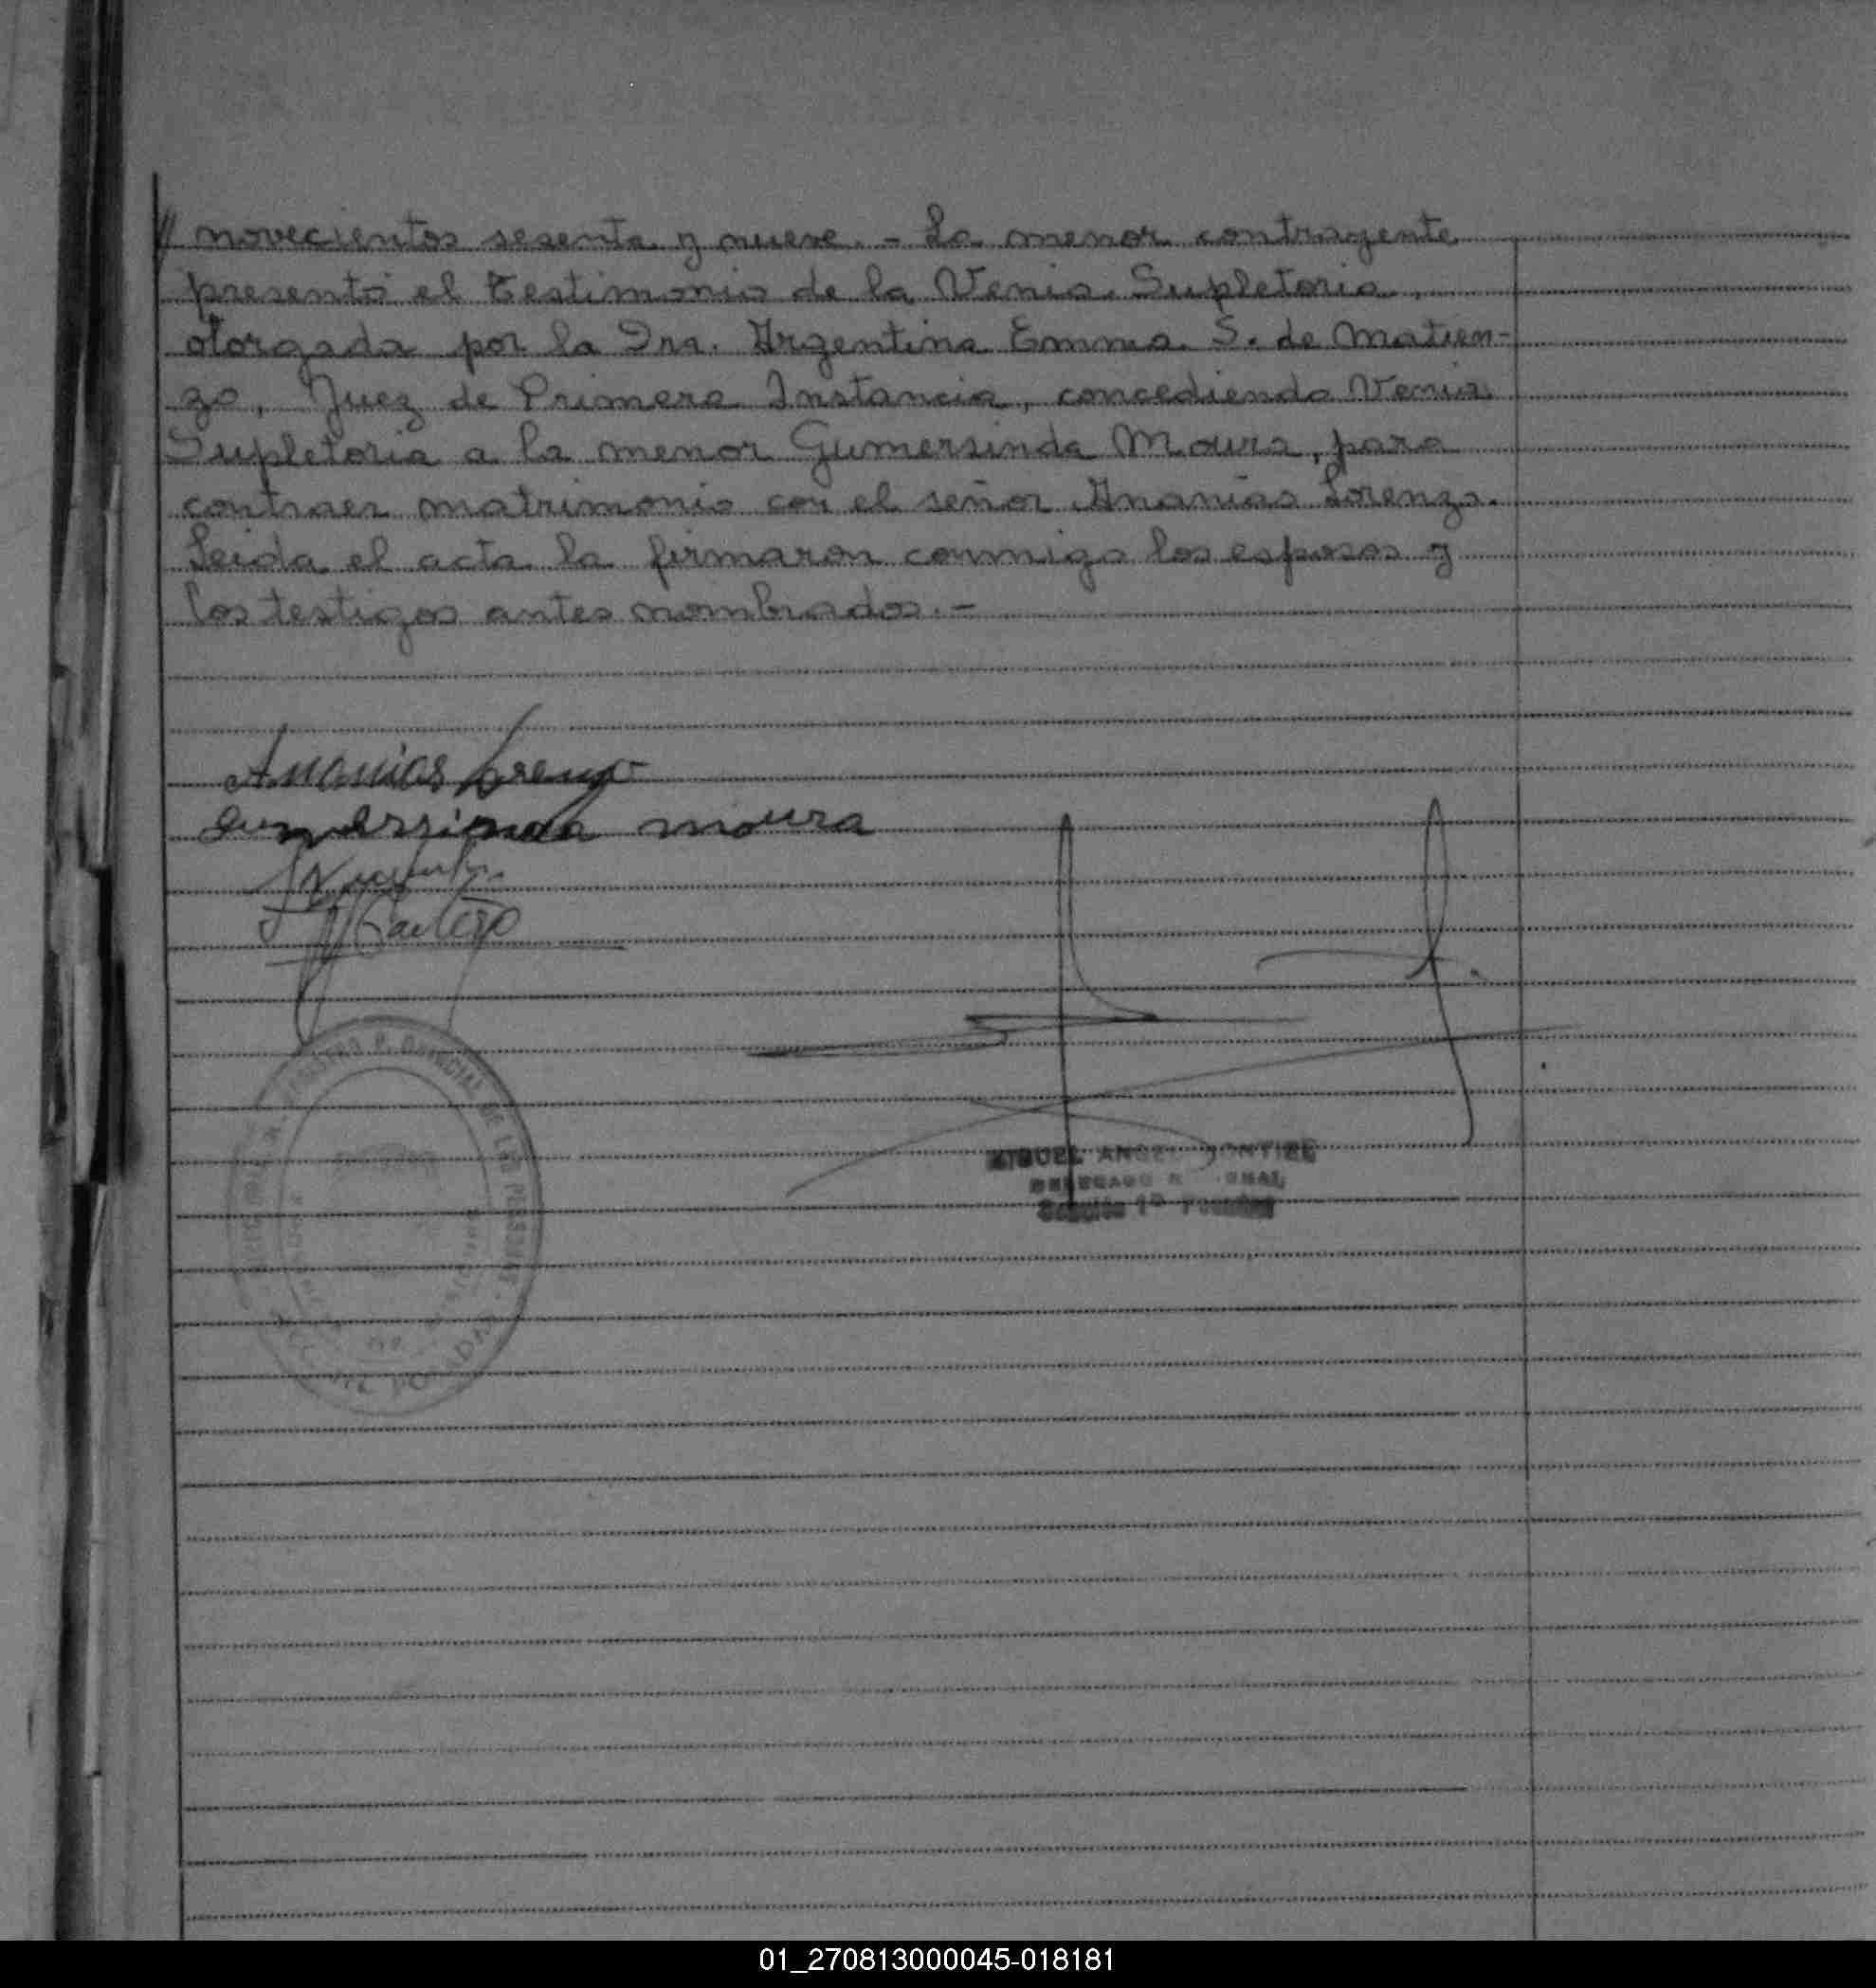 // novecientos sesenta y nueve. - La menor contrayente
presentó el Testimonio de la Venia Supletoria,
otorgada por la Dra. Argentina Emma S. de Matien-
zo, Juez de Primera Instancia, concediendo Venia
Supletoria a la menor Gumersinda Moura, para
contraer matrimonio con el señor Ananias Lorenzo.
Leida el acta la firmaron conmigo los esposos y
los testigos antes nombrados. -
Ananias Lorenzo
moura
MIGUEL ANGEL
DE LAS PERSONAS
POSADAS
01_270813000045-018181